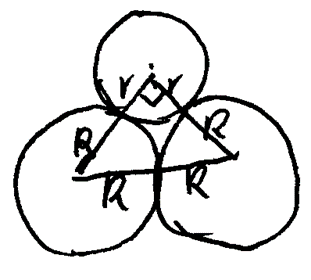 r r
R R
R R